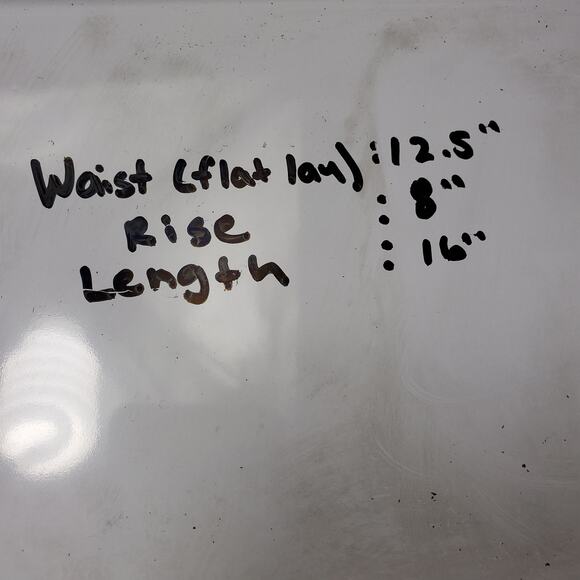 Waist (flat lay) : 12.5"
Rise : 8"
Length : 16"